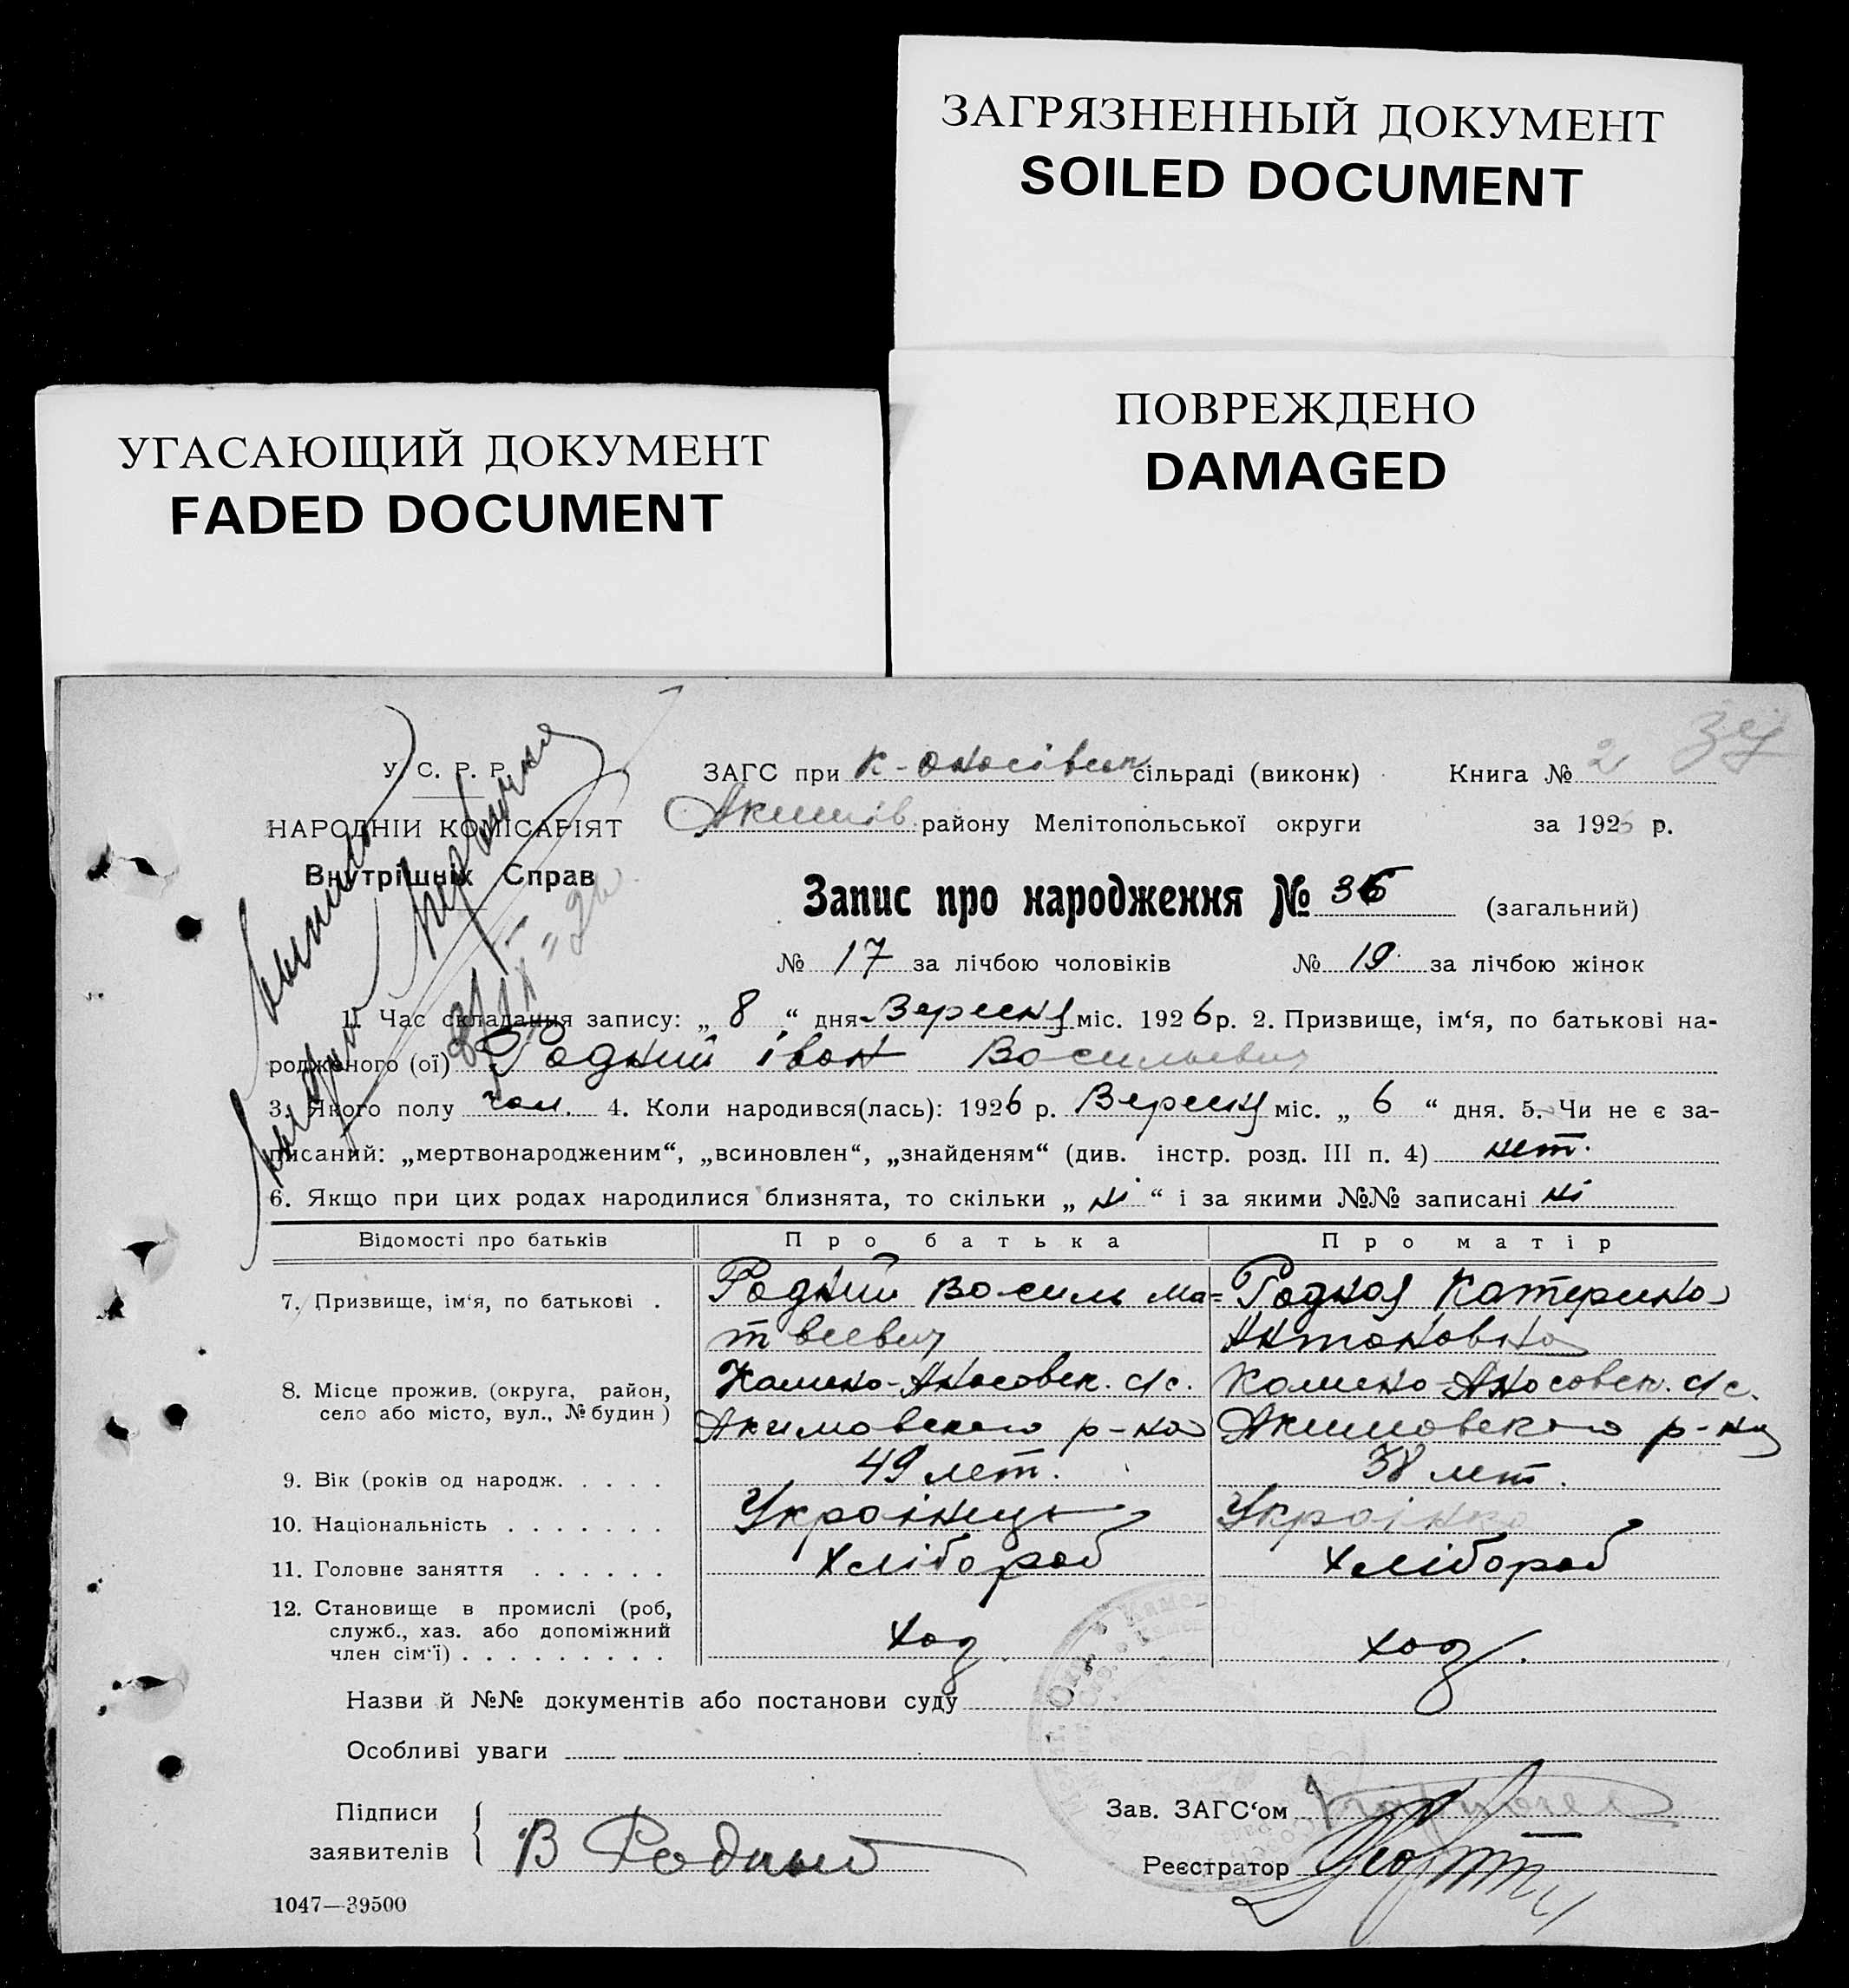 ЗАГРЯЗНЕННЫЙ ДОКУМЕНТ
SOILED DOCUMENT
ПОВРЕЖДЕНО
DAMAGED
УГАСАЮЩИЙ ДОКУМЕНТ
FADED DOCUMENT
У. С. Р. Р.
НАРОДНІЙ КОМІСАРІЯТ
Внутрішніх Справ
ЗАГС при сільраді (виконк) Книга № 2
Акимів. району Мелітопольської округи за 1926 р.
Запис про народження № 36 (загальний)
№ 17 за лічбою чоловіків № 19 за лічбою жінок
1. Час складання запису: „ 8 “ дня Вересня міс. 1926 р. 2. Призвище, ім‘я, по батькові на-
родженого (ої) Родний іван Васильевич
3. Якого полу чол. 4. Коли народився(лась): 1926 р. Вересня міс. „ 6 “ дня. 5. Чи не є за-
писаний: „мертвонародженим“, „всиновлен“, „знайденям“ (див. інстр. розд. III п. 4) нет.
6. Якщо при цих родах народилися близнята, то скільки „ ні “ і за якими №№ записані ні
Відомості про батьків Про батька Про матір
7. Призвище, ім‘я, по батькові . Родний Василь Ма= Родная Катерина
твеевич Антоновна
8. Місце прожив. (округа, район, село або місто, вул., № будин ) Камено-Аносовск. с/с. Камено-Аносовск. с/с.
Акимовского р-на Акимовского р-на
9. Вік (років од народж. . . . . 49 лет. 38 лет.
10. Національність . . . . . . . Українець Українка
11. Головне заняття . . . . . . хлібороб хлібороб
12. Становище в промислі (роб, служб., хаз. або допоміжний член сім‘ї) . . . . . . . . . хоз. хоз.
Назви й №№ документів або постанови суду
Особливі уваги
Підписи заявителів В Родный
Зав. ЗАГС‘ом
Реєстратор
1047—39500